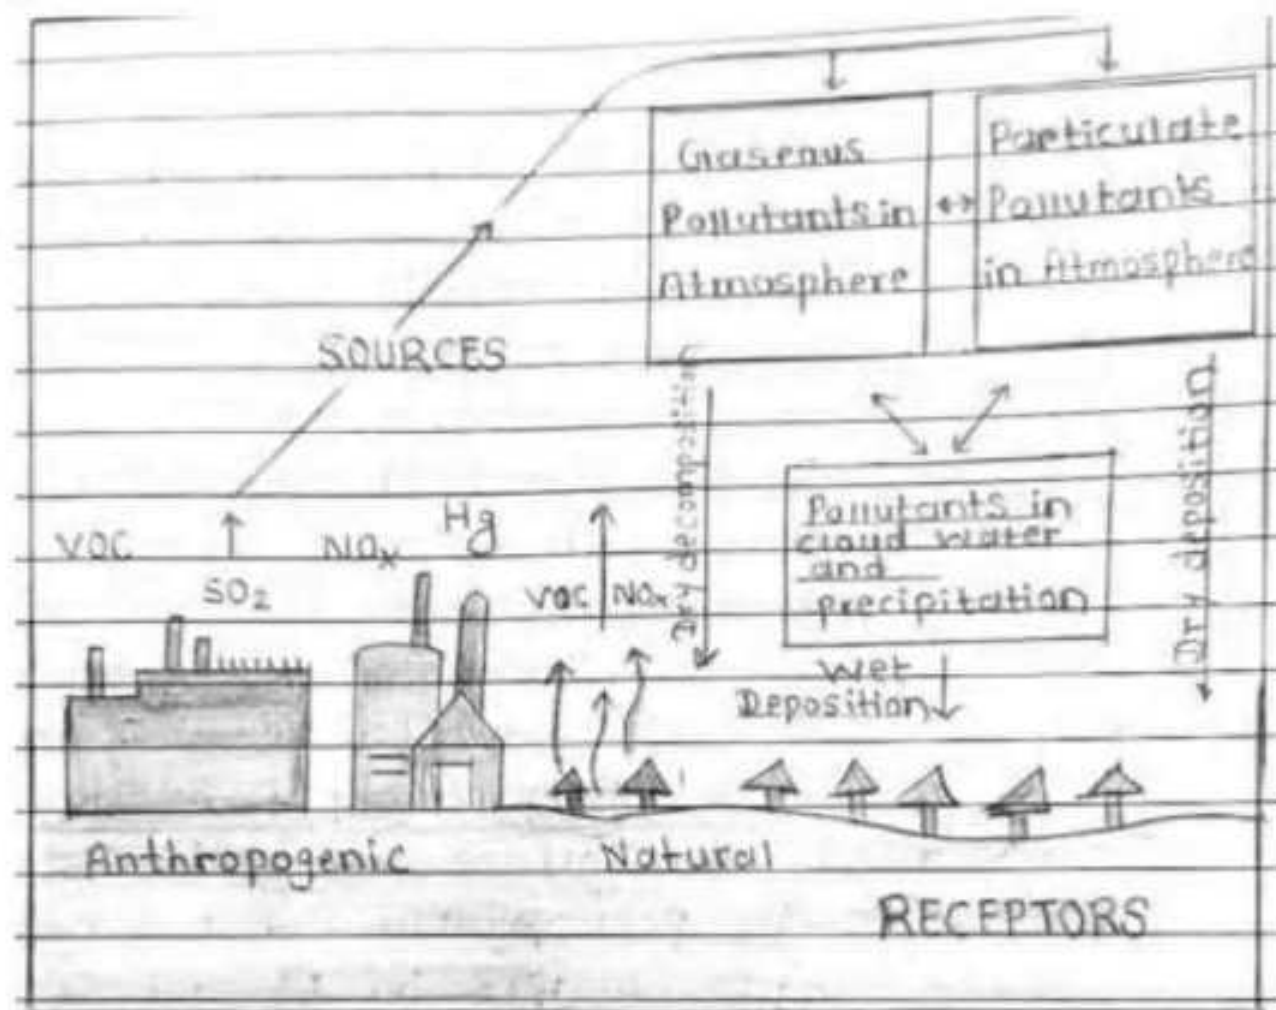 Gasenus
Pollutants in
Atmosphere
Particulate
Pollutants
in Atmosphere
SOURCES
Dry decomposition
Dry deposition
Pollutants in
cloud water
and
precipitation
Wet
Deposition
VOC
SO₂
NOx
Hg
VOC
NOx
Anthropogenic
Natural
RECEPTORS